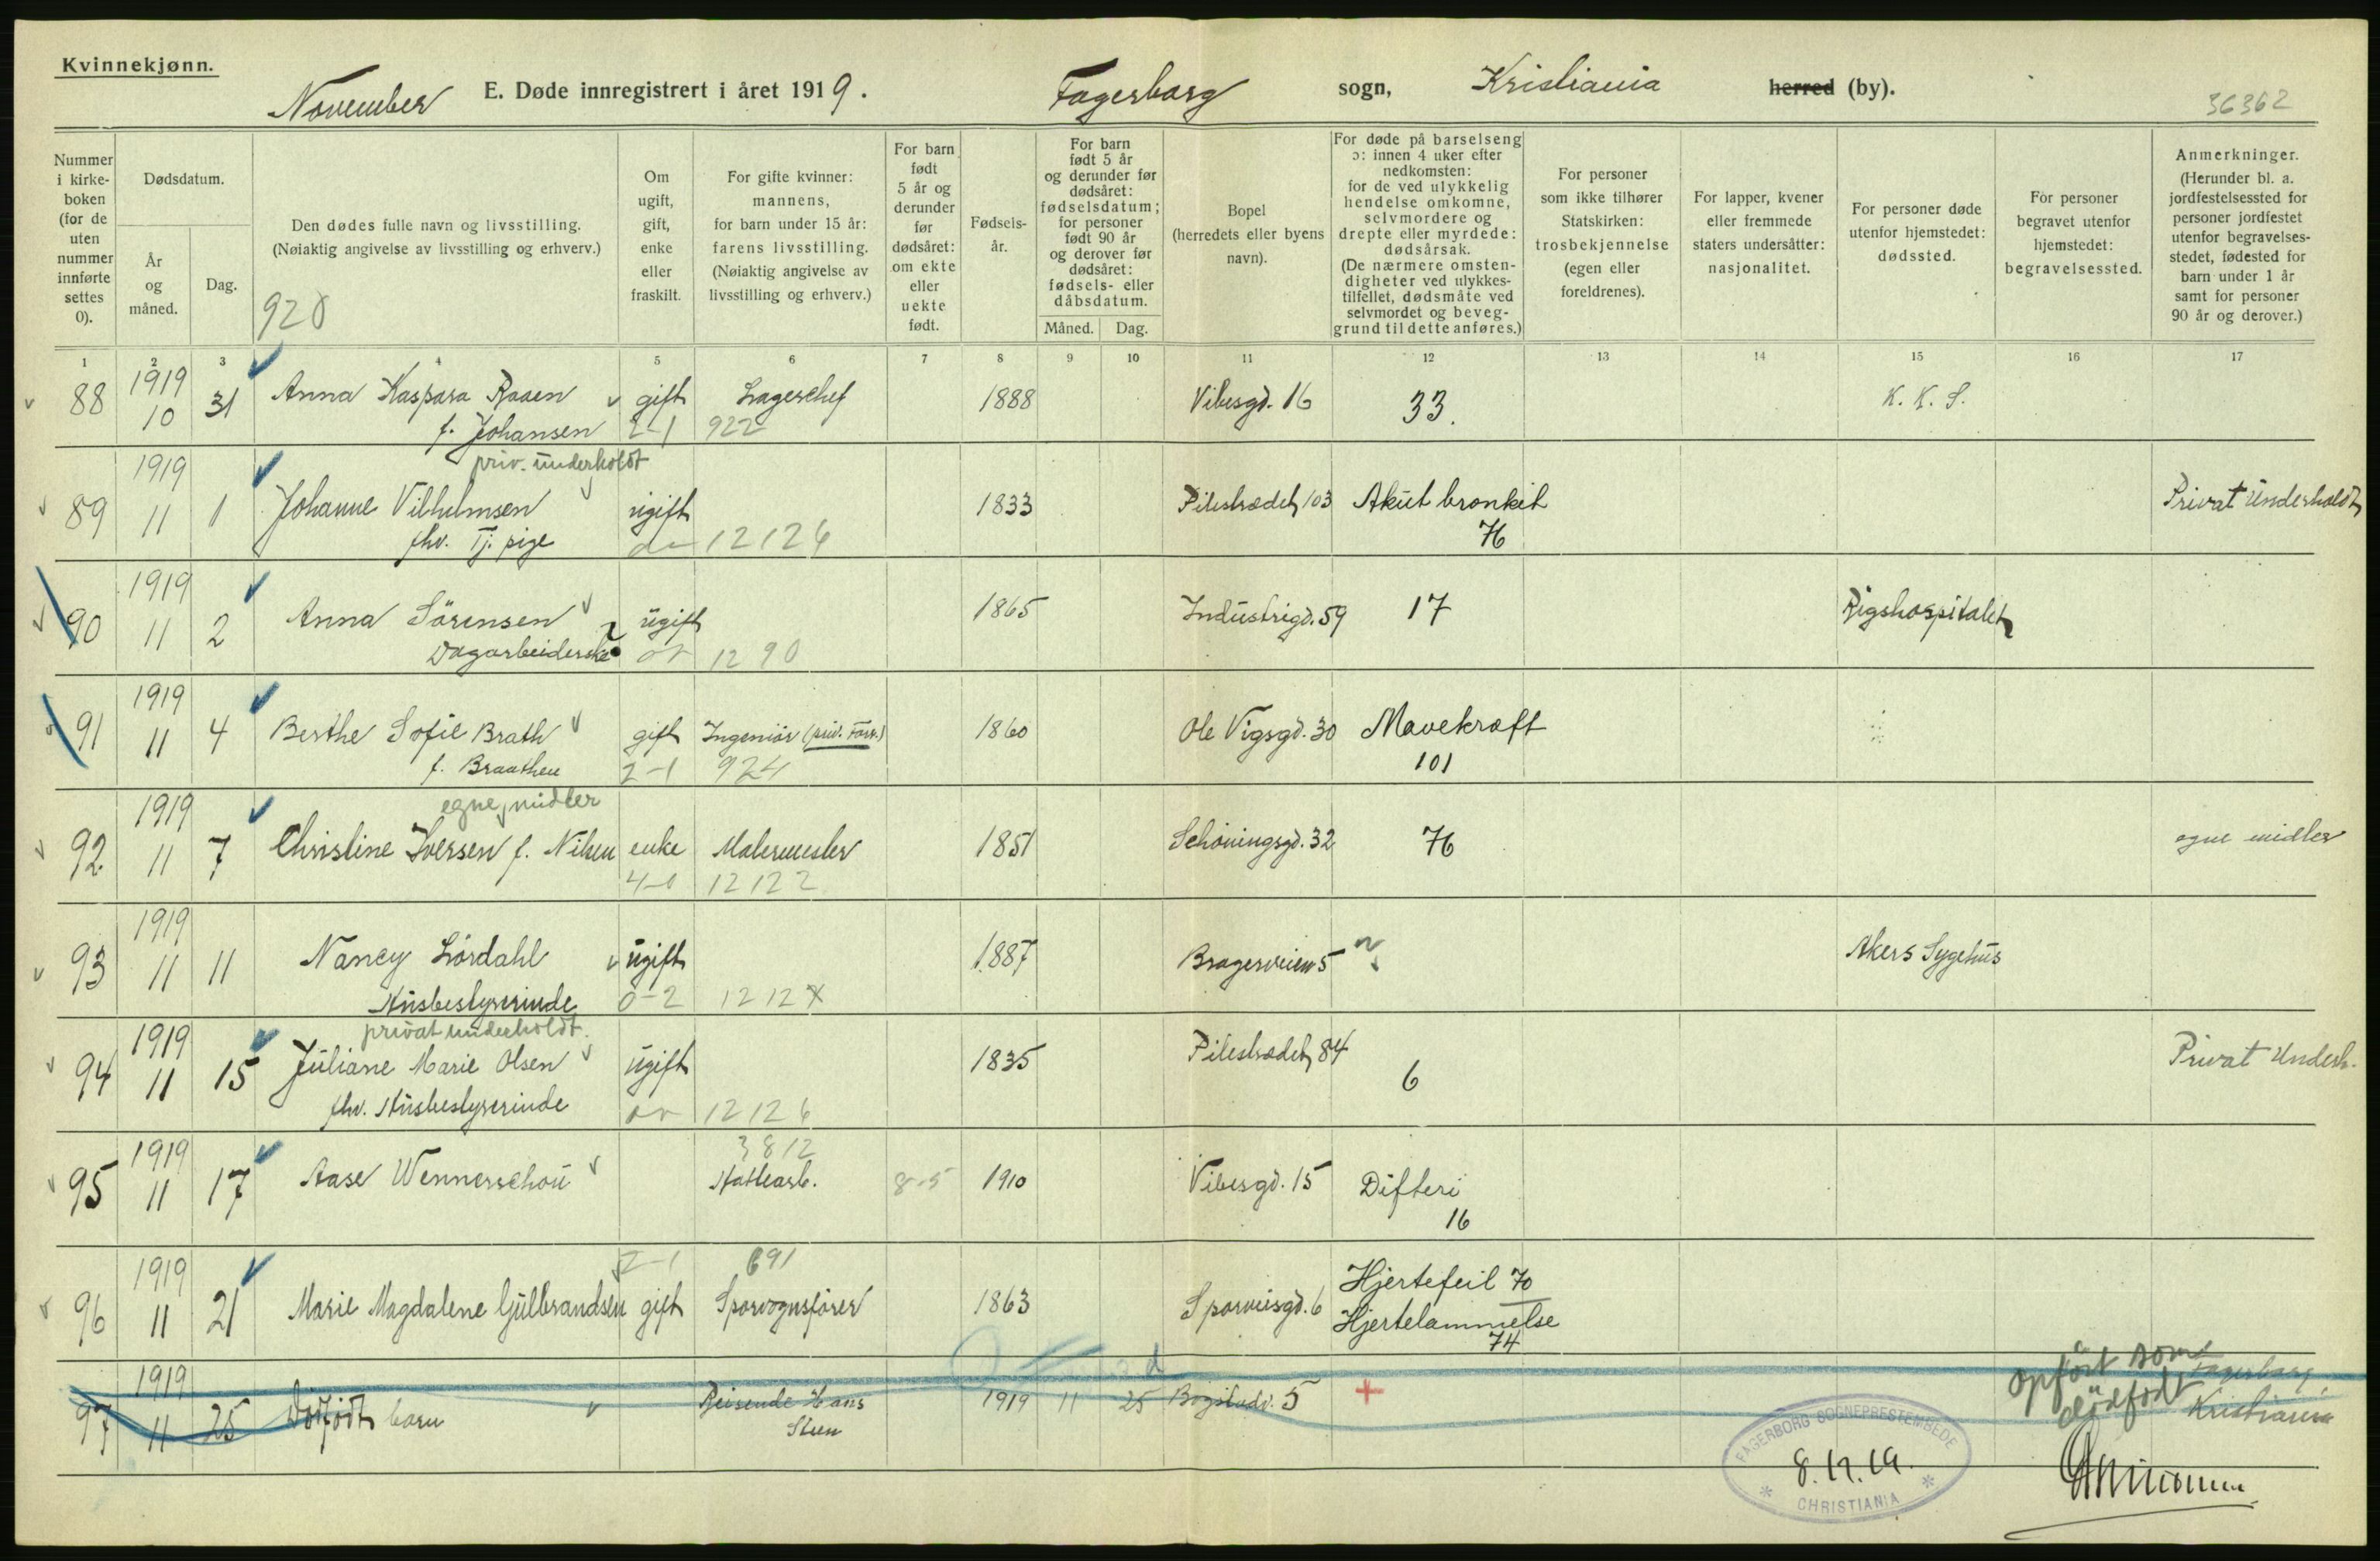 Kvinnekjønn.
November E. Døde innregistrert i året 1919. Fagerborg sogn, Kristiania herred (by).
36362
Nummer i kirkeboken (for de uten nummer innførte settes 0).
Dødsdatum.
År og måned.
Dag.
Den dødes fulle navn og livsstilling.
(Nøiaktig angivelse av livsstilling og erhverv.)
920
Om ugift, gift, enke eller fraskilt.
For gifte kvinner: mannens, for barn under 15 år: farens livsstilling.
(Nøiaktig angivelse av livsstilling og erhverv.)
For barn født 5 år og derunder før dødsåret: om ekte eller uekte født.
Fødselsår.
For barn født 5 år og derunder før dødsåret: fødselsdatum; for personer født 90 år og derover før dødsåret: fødsels- eller dåbsdatum.
Måned. Dag.
Bopel (herredets eller byens navn).
For døde på barselseng ɔ: innen 4 uker efter nedkomsten: for de ved ulykkelig hendelse omkomne, selvmordere og drepte eller myrdede: dødsårsak.
(De nærmere omstendigheter ved ulykkestilfellet, dødsmåte ved selvmordet og beveggrund til dette anføres.)
For personer som ikke tilhører Statskirken: trosbekjennelse (egen eller foreldrenes).
For lapper, kvener eller fremmede staters undersåtter: nasjonalitet.
For personer døde utenfor hjemstedet: dødssted.
For personer begravet utenfor hjemstedet: begravelsessted.
Anmerkninger.
(Herunder bl. a. jordfestelsessted for personer jordfestet utenfor begravelsesstedet, fødested for barn under 1 år samt for personer 90 år og derover.)
1 2 3 4 5 6 7 8 9 10 11 12 13 14 15 16 17
88 1919 10 31 Anna Kaspara Raaen gift Lagerchef 1888 Vibesgd. 16 33. K. K. S.
f. Johansen 2-1 922
priv. underholdt
89 1919 11 1 Johanne Vilhelmsen ugift 1833 Pilestrædet 103 Akut bronkit 76 Privat Underholdt
fhv. Tj. pige 12126
90 1919 11 2 Anna Sörensen ugift 1865 Industrigd. 59 17 Rigshospitalet
Dagarbeiderske 1290
91 1919 11 4 Berthe Sofie Brath gift Ingeniör (priv. Forr.) 1860 Ole Vigsgd. 30 Mavekræft 101
f. Braathen 2-1 924
egne midler
92 1919 11 7 Christine Iversen f. Nilsen enke Malermester 1851 Schöningsgd. 32 76 egne midler
4-0 12122
93 1919 11 11 Nancy Lördahl ugift 1887 Bragerveien 5 ? Akers Sygehus
Husbestyrerinde 0-2 1212
privat underholdt.
94 1919 11 15 Juliane Marie Olsen ugift 1835 Pilestrædet 84 6 Privat Underh.
fhv. Husbestyrerinde 12126
3812
95 1919 11 17 Aase Wennerschou 8-5 1910 Vibesgd. 15 Difteri 16
2-1 691
96 1919 11 21 Marie Magdalene Gulbrandsen gift Sporvognsförer 1863 Sporveisgd. 6 Hjertefeil 70
Hjertelammelse 74
97 1919 11 25 Dödfödt barn Reisende Hans Steen 1919 11 25 Bogstadv. 5 +
opfört som dödfödt
Fagerborg, Kristiania
FAGERBORG SOGNEPRESTEMBEDE
8.12.19.
* CHRISTIANIA *